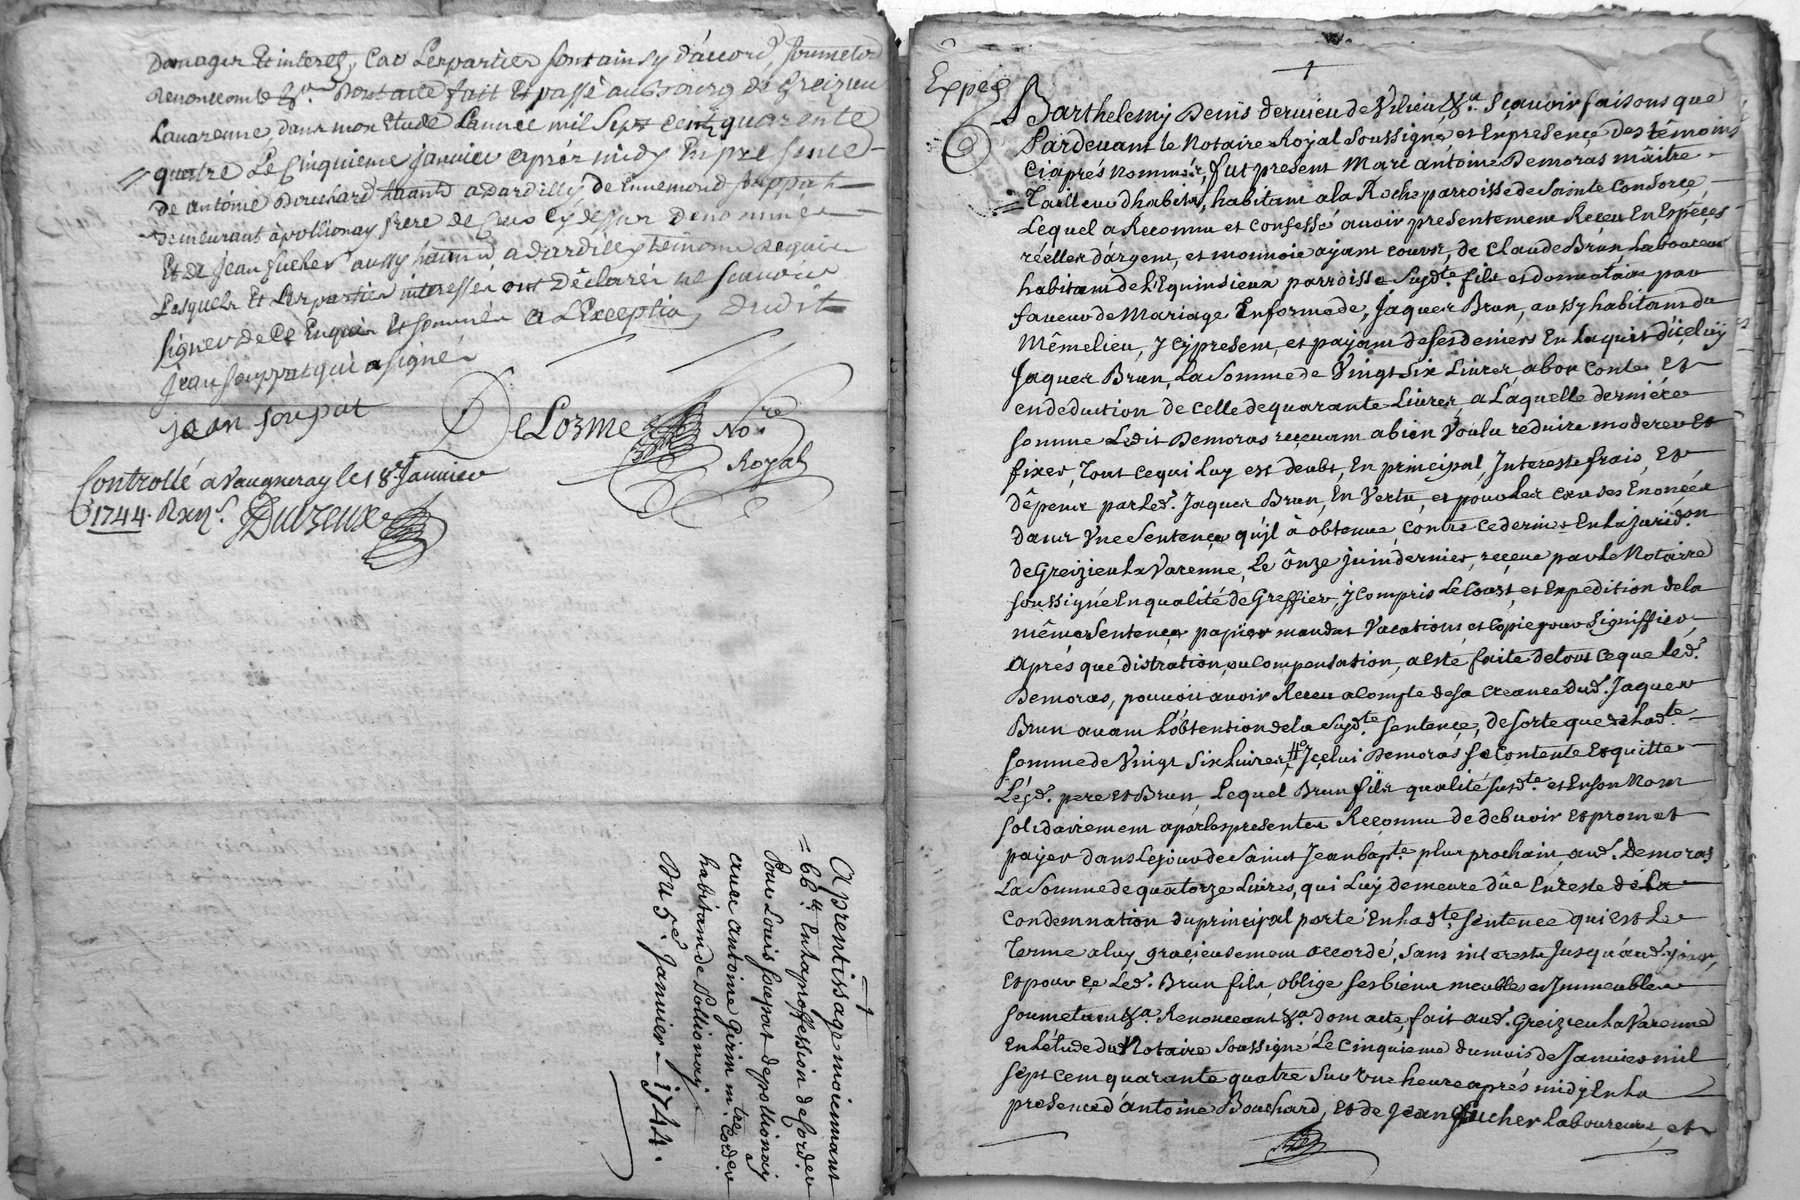 Domages Et interets, Car Les parties sont ainsy d'accord soumetod
Renoncemt &a. Dont acte fait Et passé au Bourg de Greizieu
Lavarenne dans mon Etude L'année mil Sept cent quarente
quatre Le Cinquieme janvier aprés midy En presence
de antoine Bouchard habitant a dardilly de Ennemond souppat
demeurant à pollionay frere de Louis cy dessus denommé
Et de jean fucher aussy habitant a dardilly temoins requis
Lesquels Et Les parties interessées ont Déclarés ne scavoir
signer de Ce Enquis Et sommés a L'Exception dudit
jean souppat qui a signé
jean soupat
DeLorme Nore
Royal
Controllé a Vaugneray le 18e. Janvier
1744. R
Duizeux
Aprentissage moiennant
66ll. En la proffession de Corder
Pour Louis soupat de pollionay
avec antoine Girin mtre. Corder
habitant de Pollionay
Du 5e. Janvier 1744.
Expég
Barthelemy Denis Dervieu de Vilieu &a. Sçavoir faisons que
Pardevant le Notaire Royal Soussigné, et En presence des têmoins
Ciaprés nommés, fut present Marc antoine Demoras mâitre
Tailleur d'habits, habitant a la Roche parroisse de Sainte Consorce,
Lequel a Reconnu et confessé avoir presentement Receu En Espèces
réelles d'argent, et monnoie ayant cours, de Claude Brun Laboureur
habitant de L'Equinsieux parroisse Susdte. fils et donnataire par
faveur de Mariage En forme de, Jaques Brun, aussy habitant du
Mêmelieu, y cy present, et payant de ses deniers En L'aquit d'iceluy
Jaques Brun, La Somme de Vingt Six Livres a bon Conte Et
en deduction de celle de quarante Livres, a Laquelle derniére
somme Ledit Demoras reçevant a bien Voulu reduire moderer Et
fixer, Tout ce qui Luy est deubt, En principal, Interests frais, Et
dépens par Led. Jaques Brun, En Vertu, et pour Les causes Enoncées
dans Vne Sentence qu'jl à obtenue, contre ce dernier En La jurid.on
de Greizieu La Varenne, Le ônze juin dernier, reçeue par Le Notaire
soussigné En qualité de Greffier, y compris Le Coust, et Expedition de la
même Sentence papier mandat Vacations et Copie pour Signiffier,
Aprés que distration, ou Compensation, a Esté faite de tout ce que Led.
Demoras, pouvoit avoir Receu a Compte de sa Creance dud. Jaques
Brun avant L'obtention de la Susdte. Sentence, de sorte que de Ladte.
somme de Vingt Six Livres, Jcelui Demoras se Contente Et quitte
Lesd. pere Et Brun, Lequel Brun fils qualité Susdte. et En son Nom
solidairement a par les presentes Reconnu de debvoir Et promet
payer dans Le jour de Saint Jean bapte. plus prochain, aud. Demoras
La Somme de quatorze Livres, qui Luy demeure dûe En reste de la
Condemnation du principal porté En Ladte. Sentence qui est Le
Terme a luy graçieusement accordé, Sans interests Jusqu'áud. jour,
Et pour çe Led. Brun fils, oblige ses biens meubles et Immeubles
soumetant &a. Renonceant &a. dont acte, fait aud. Greizieu La Varenne
En L'étude du Notaire Soussigné Le Cinquieme du mois de Janvier mil
sept Cent quarante quatre Sur Vne heure aprés midy En La
presence d'antoine Bouchard, Et de Jean Fucher Laboureurs, et